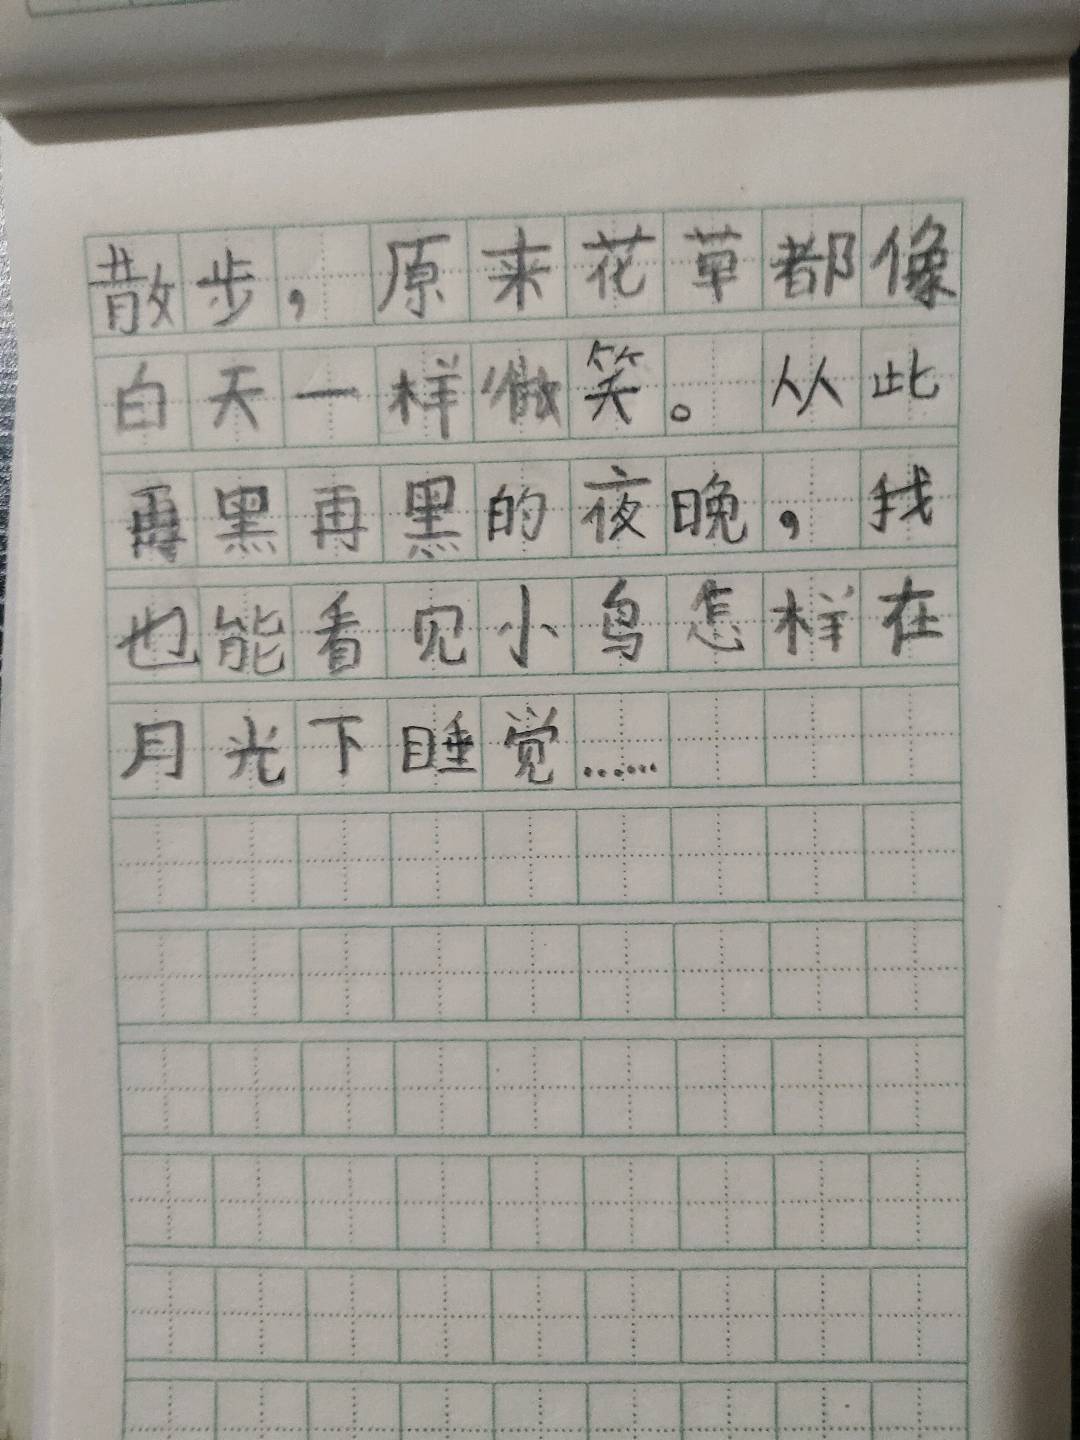 散步，原来花草都像
白天一样微笑。从此
再黑再黑的夜晚，我
也能看见小鸟怎样在
月光下睡觉……